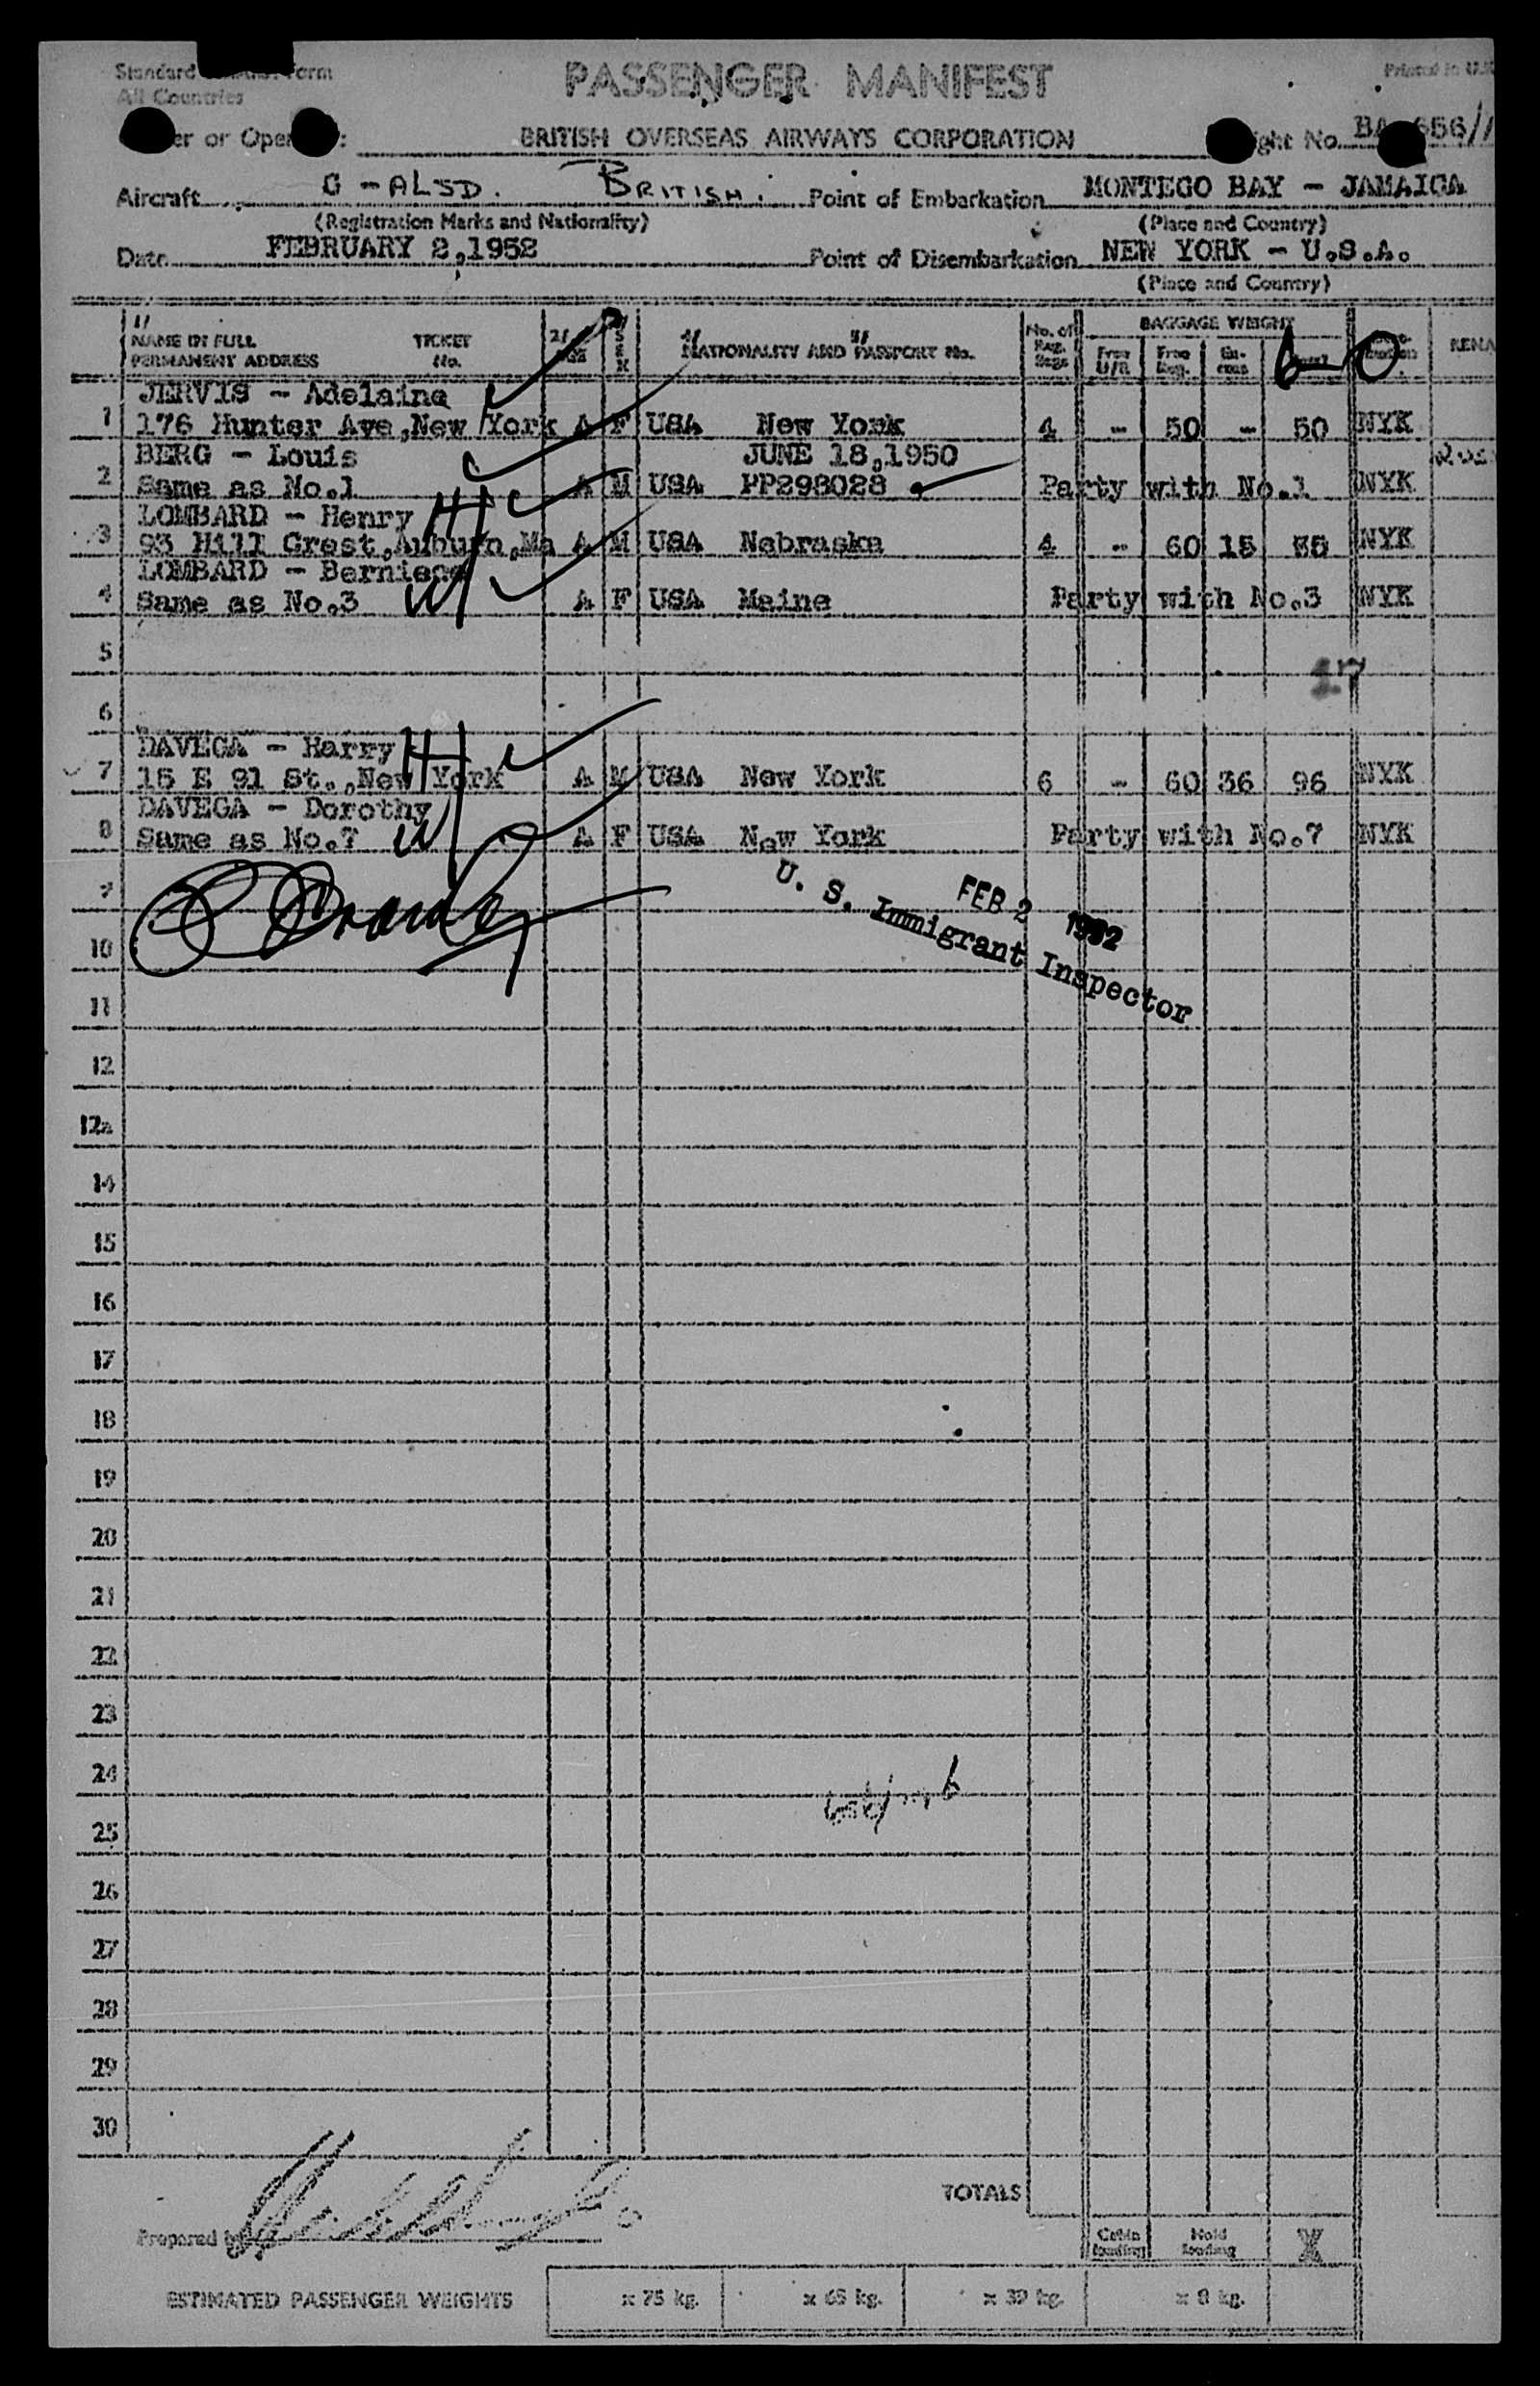 Standard Form
All Countries
PASSENGER MANIFEST
Printed in U.K.
er or Oper :
BRITISH OVERSEAS AIRWAYS CORPORATION
ght No. BA 656//
Aircraft G-ALSD. BRITISH. Point of Embarkation MONTEGO BAY - JAMAICA
(Registration Marks and Nationality) (Place and Country)
Date FEBRUARY 2,1952 Point of Disembarkation NEW YORK - U.S.A.
(Place and Country)
1/ NAME IN FULL TICKET 2/ SEX 4/ 5/ No. of BAGGAGE WEIGHT REMA
PERMANENT ADDRESS No. AGE NATIONALITY AND PASSPORT No. Reg. Bags Free U/R Free Reg. Ex- cess 6-0
JERVIS - Adelaine
1 176 Hunter Ave,New York A F USA New York 4 - 50 - 50 NYK
BERG - Louis JUNE 18,1950
2 Same as No.1 A M USA PP298028 Party with No.1 NYK
LOMBARD - Henry
3 93 Hill Crest,Auburn,Ma A M USA Nebraska 4 - 60 15 NYK
LOMBARD - Berniece
4 Same as No.3 A F USA Maine Party with No.3 NYK
5
17
6
DAVEGA - Harry
7 15 E 91 St.,New York A M USA New York 6 - 60 36 96 NYK
DAVEGA - Dorothy
8 Same as No.7 A F USA New York Party with No.7 NYK
9
FEB 2 1952
U. S. Immigrant Inspector
10
11
12
12a
14
15
16
17
18
19
20
21
22
23
24
25
26
27
28
29
30
TOTALS
Prepared by
Cabin loading Hold loading X
ESTIMATED PASSENGER WEIGHTS x 75 kg. x 65 kg. x 39 kg. x 8 kg.